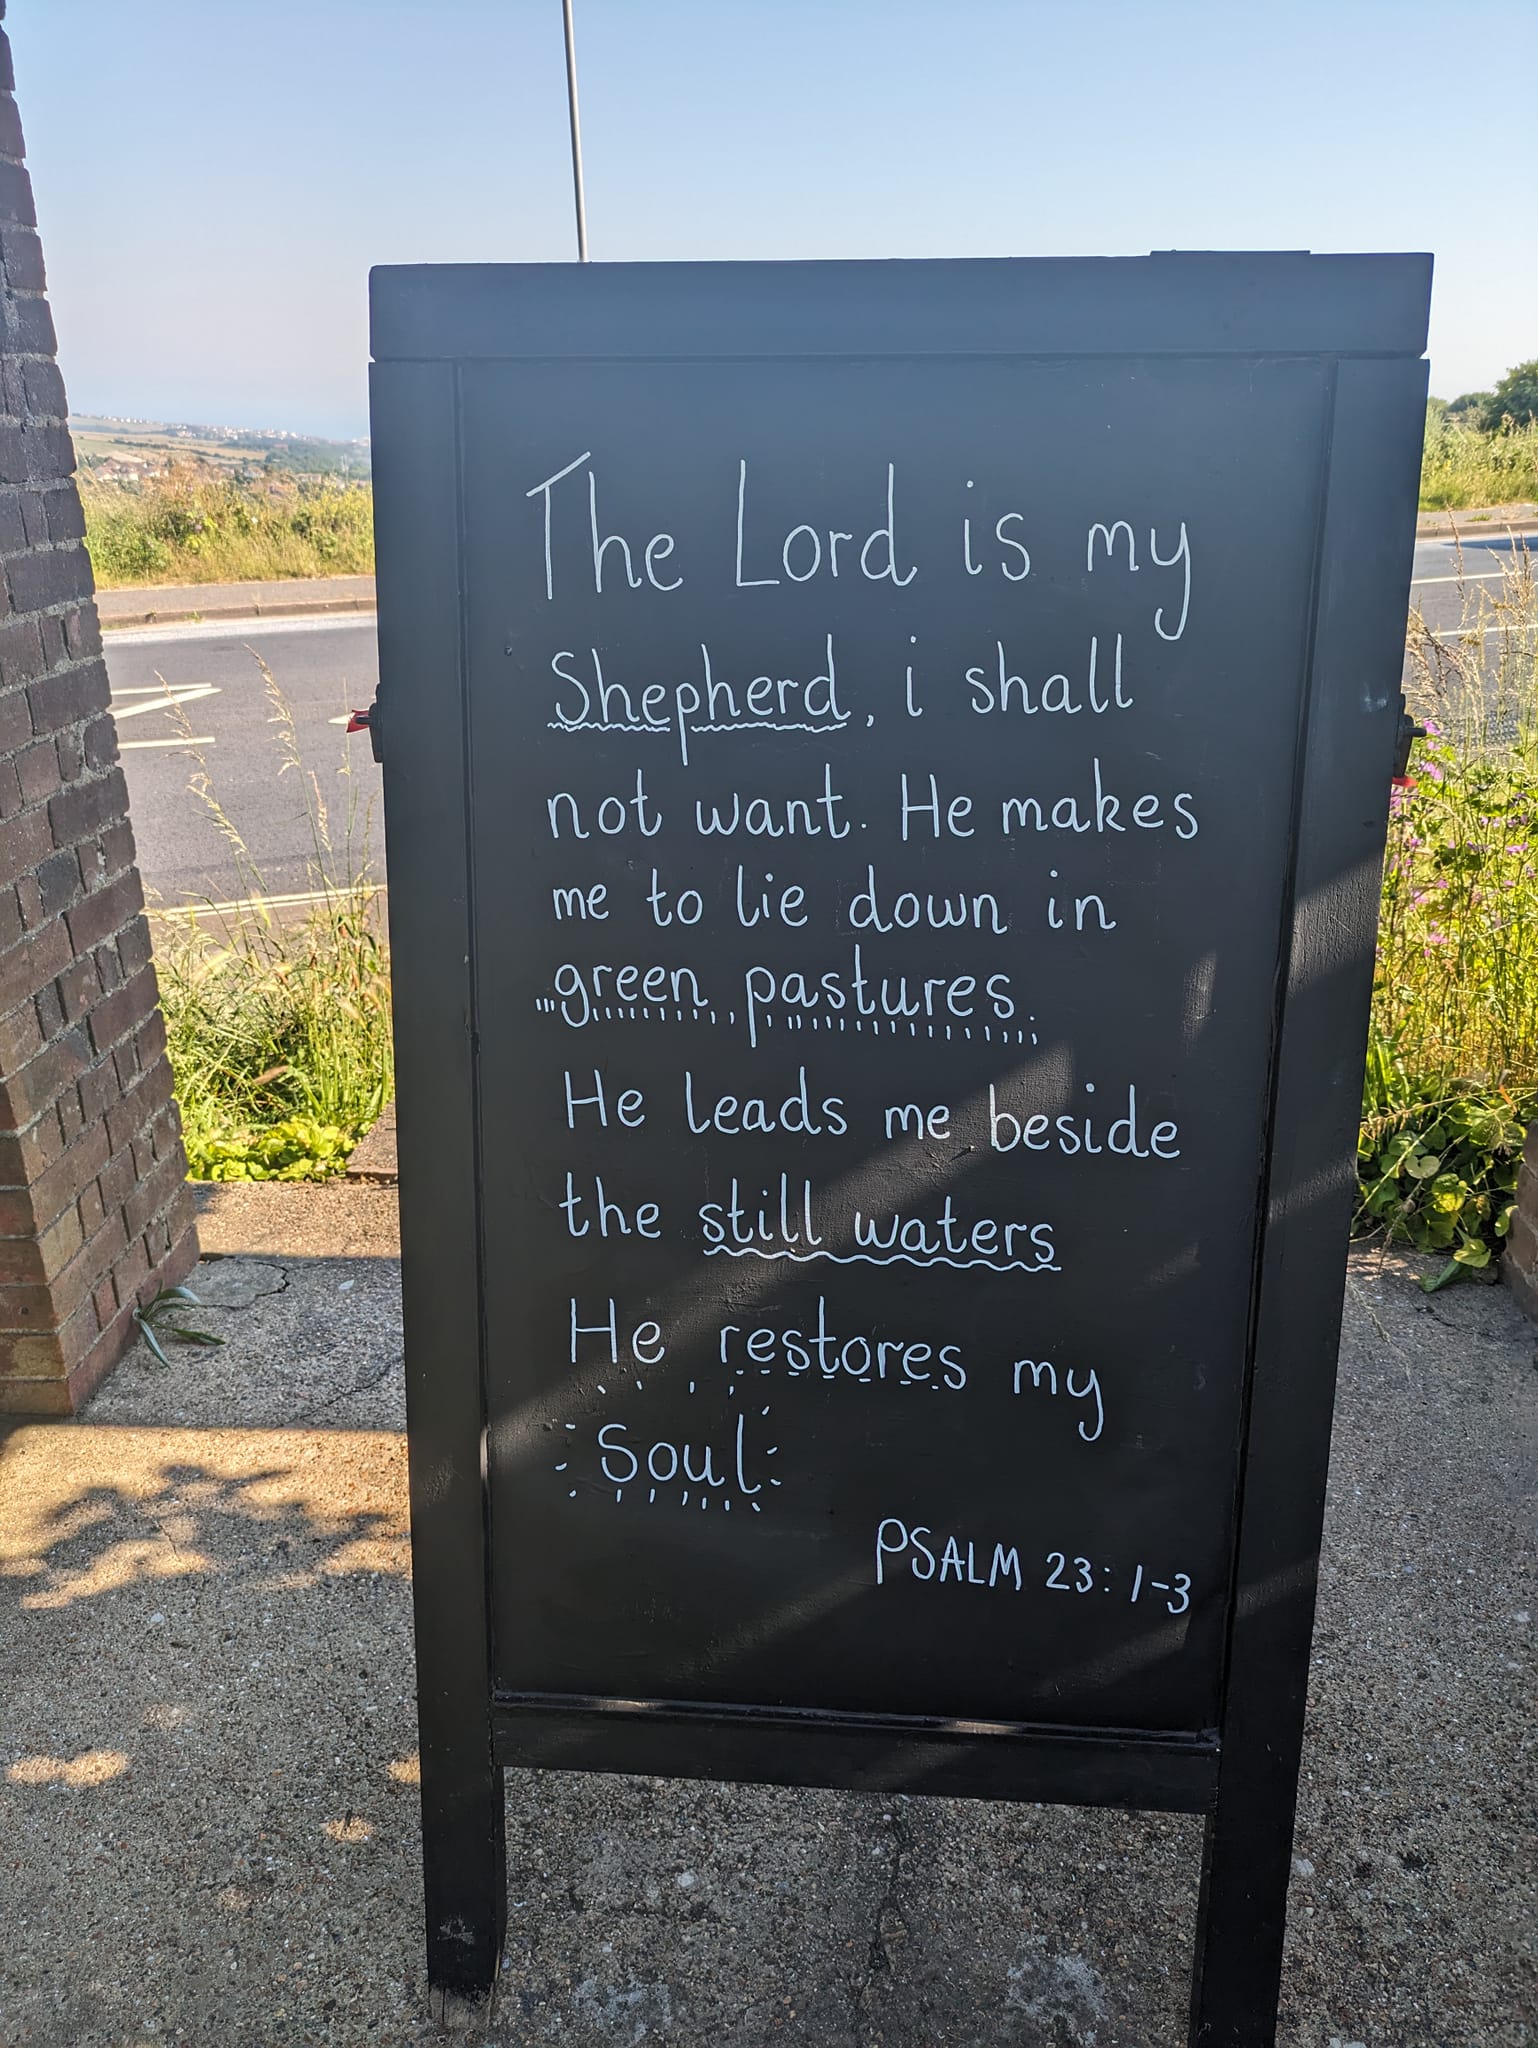 The Lord is my
Shepherd, i shall
not want. He makes
me to lie down in
green pastures.
He leads me beside
the still waters
He restores my
Soul
PSALM 23: 1-3